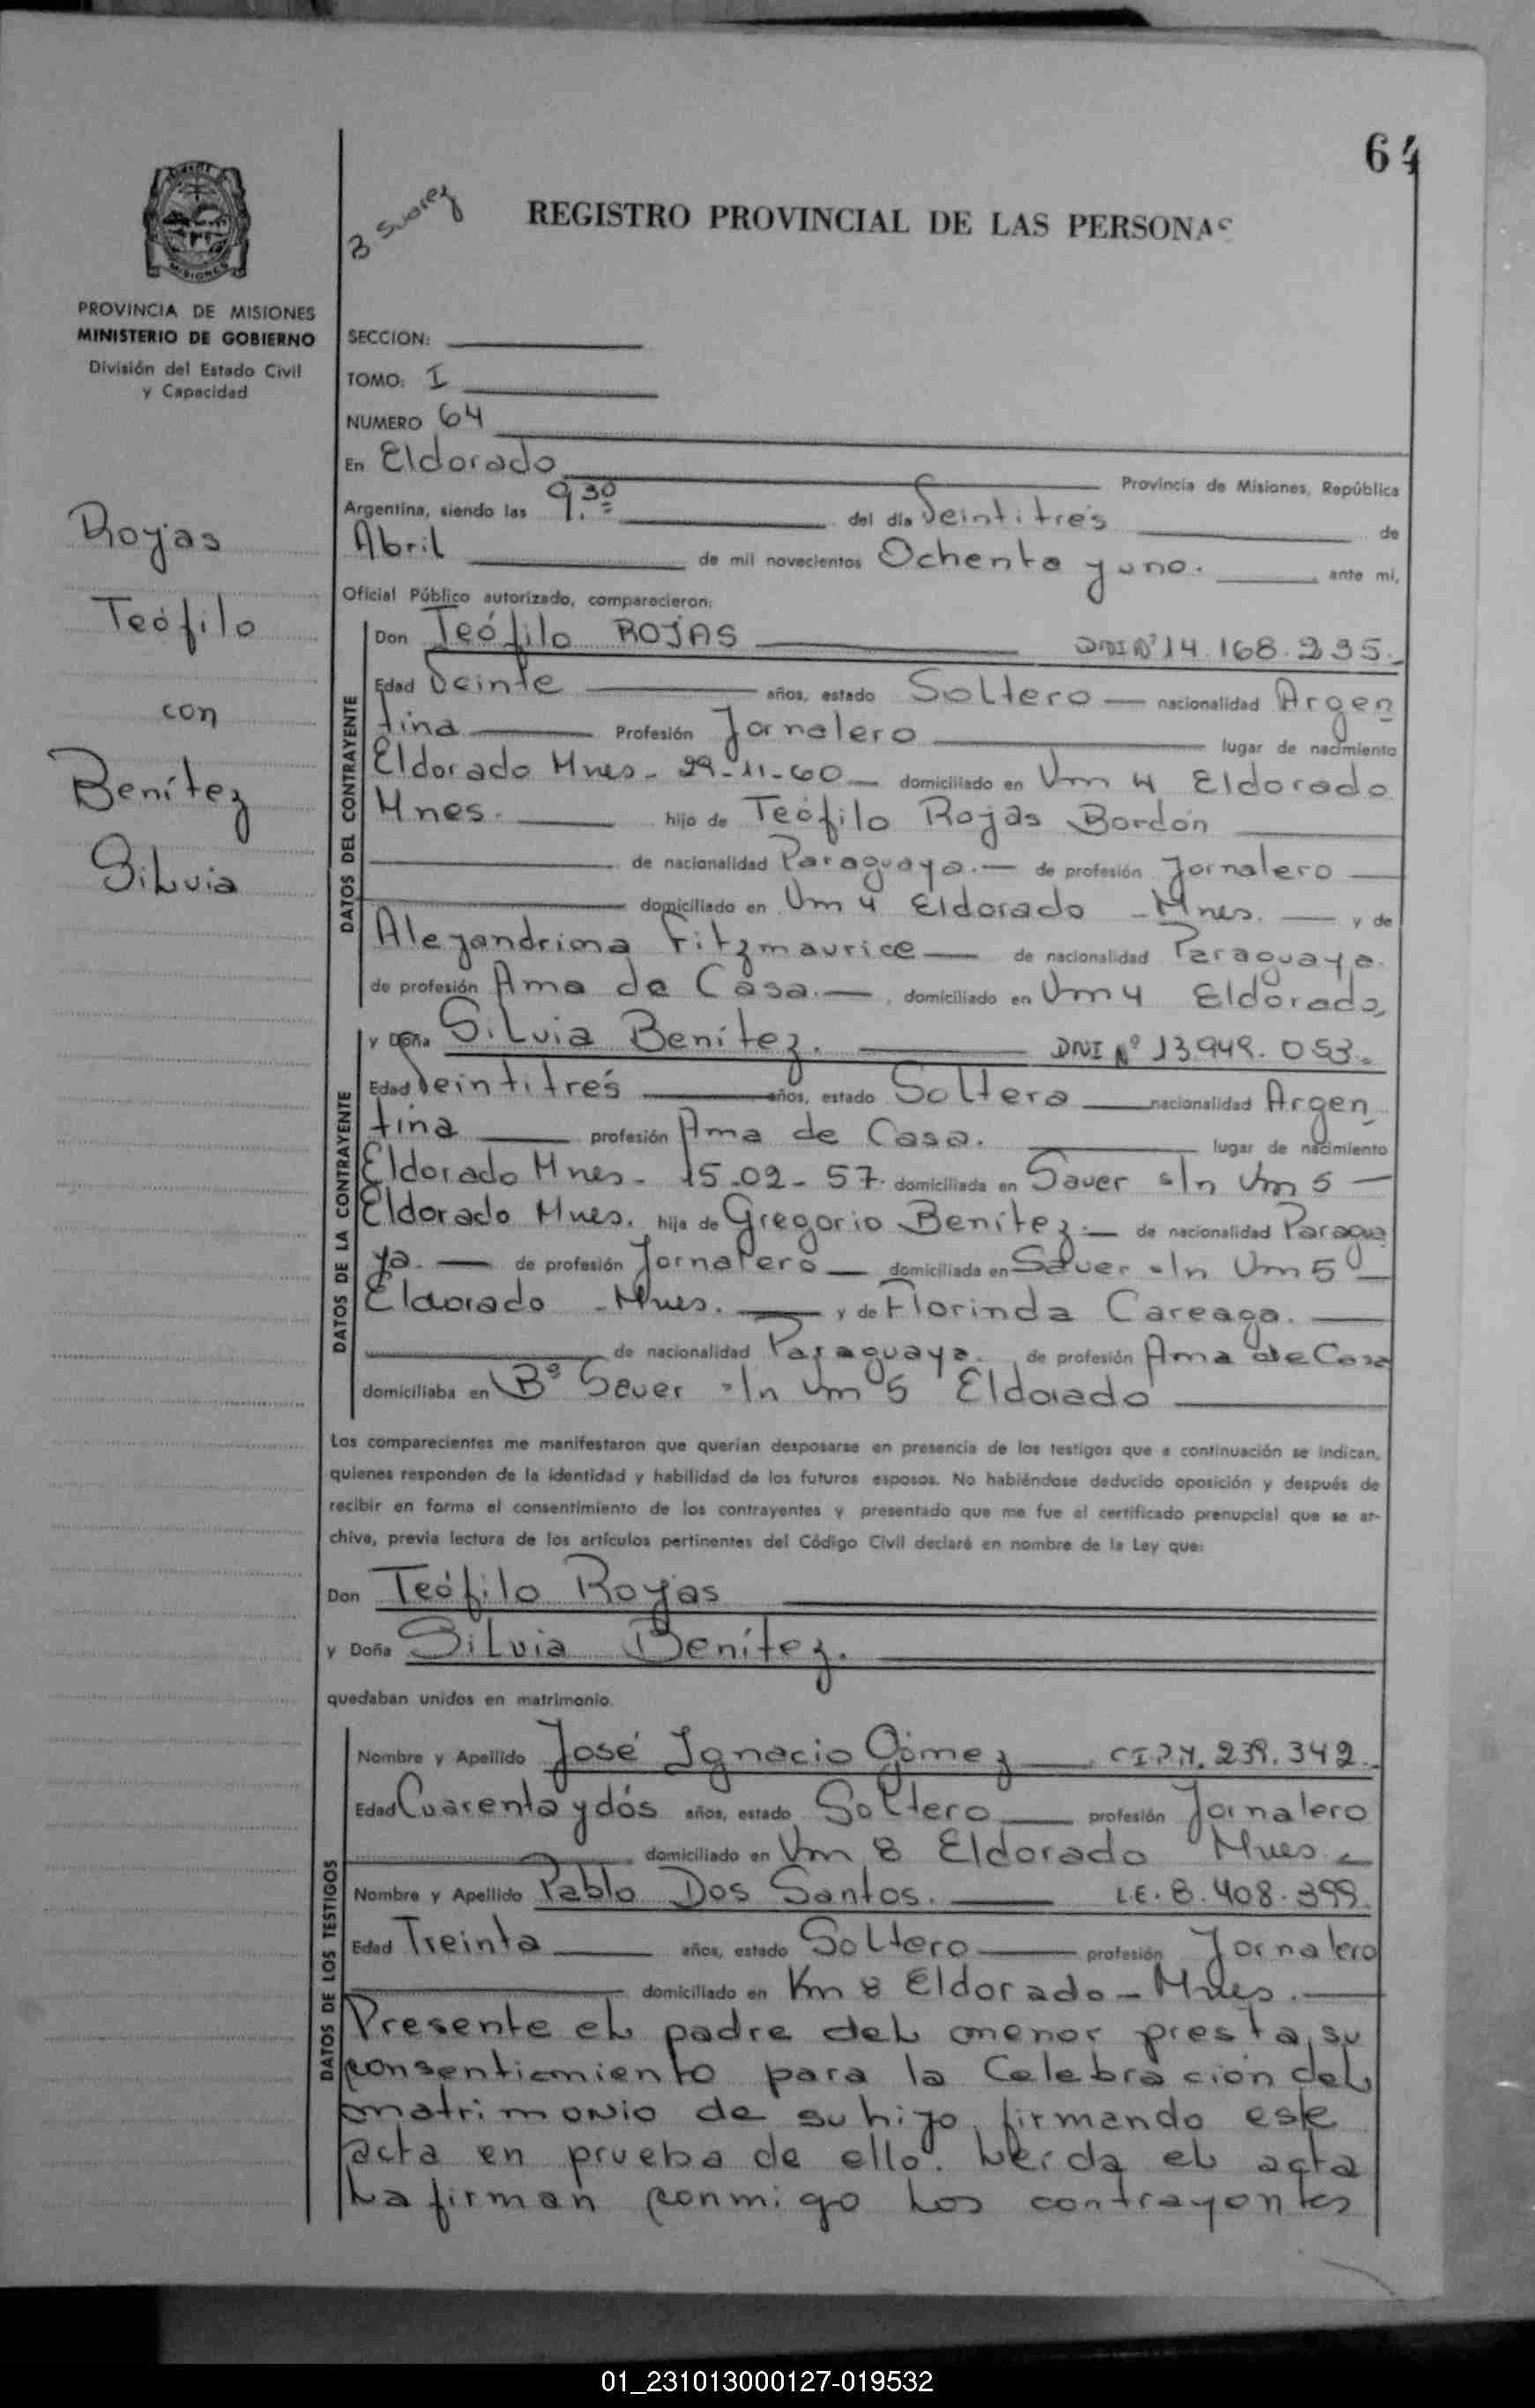 64
B Suarez
REGISTRO PROVINCIAL DE LAS PERSONAS
MISIONES
PROVINCIA DE MISIONES
MINISTERIO DE GOBIERNO
División del Estado Civil
y Capacidad
SECCION:
TOMO: I
NUMERO 64
En Eldorado Provincia de Misiones, República
Argentina, siendo las 9.30 del día Veintitrés de
Abril de mil novecientos Ochenta y uno. ante mí,
Oficial Público autorizado, comparecieron:
Rojas
Teófilo
con
Benítez
Silvia
DATOS DEL CONTRAYENTE
Don Teófilo ROJAS DNI Nº 14.168.235.
Edad Veinte años, estado Soltero nacionalidad Argen
tina Profesión Jornalero lugar de nacimiento
Eldorado Mnes. 29-11-60 domiciliado en Km 4 Eldorado
Mnes. hijo de Teófilo Rojas Bordón
de nacionalidad Paraguaya. de profesión Jornalero
domiciliado en Km 4 Eldorado - Mnes. y de
Alejandrina Fitzmaurice de nacionalidad Paraguaya.
de profesión Ama de Casa. domiciliado en Km 4 Eldorado
DATOS DE LA CONTRAYENTE
y Doña Silvia Benítez. DNI Nº 13.949.053.
Edad Veintitrés años, estado Soltera nacionalidad Argen
tina profesión Ama de Casa. lugar de nacimiento
Eldorado Mnes. 15-02-57. domiciliada en Sauer s/n Km 5
Eldorado Mnes. hija de Gregorio Benítez. de nacionalidad Paragua
ya. de profesión Jornalero domiciliada en Sauer s/n Km 5
Eldorado - Mnes. y de Florinda Careaga.
de nacionalidad Paraguaya. de profesión Ama de Casa
domiciliaba en Bº Sauer s/n Km 5 Eldorado
Los comparecientes me manifestaron que querían desposarse en presencia de los testigos que a continuación se indican,
quienes responden de la identidad y habilidad de los futuros esposos. No habiéndose deducido oposición y después de
recibir en forma el consentimiento de los contrayentes y presentado que me fue el certificado prenupcial que se ar-
chiva, previa lectura de los artículos pertinentes del Código Civil declaré en nombre de la Ley que:
Don Teófilo Rojas
y Doña Silvia Benítez.
quedaban unidos en matrimonio.
DATOS DE LOS TESTIGOS
Nombre y Apellido José Ignacio Gómez C.I.P.M. 239.342.
Edad Cuarenta y dós años, estado Soltero profesión Jornalero
domiciliado en Km 8 Eldorado Mnes.
Nombre y Apellido Pablo Dos Santos. L.E. 8.408.399.
Edad Treinta años, estado Soltero profesión Jornalero
domiciliado en Km 8 Eldorado - Mnes.
Presente el padre del menor presta su
consentimiento para la Celebración del
matrimonio de su hijo, firmando este
acta en prueba de ello. Leída el acta
La firman conmigo Los contrayentes
01_231013000127-019532